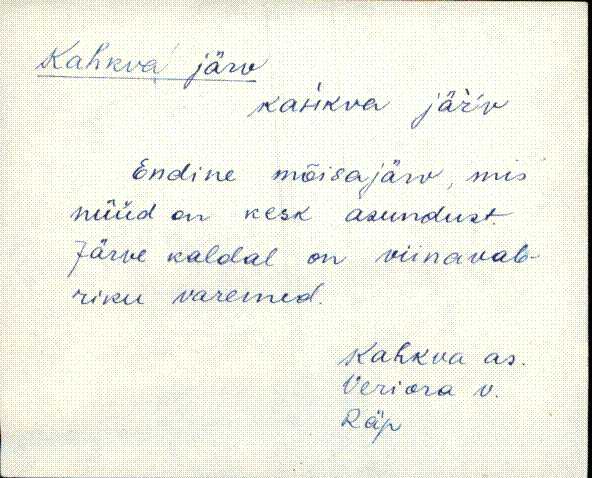 Kahkva järv
kahkva järv
Endine mõisajärv, mis
nüüd on kesk asundust.
Järve kaldal on viinavab-
riku varemed.
Kahkva as.
Veriora v.
Räp